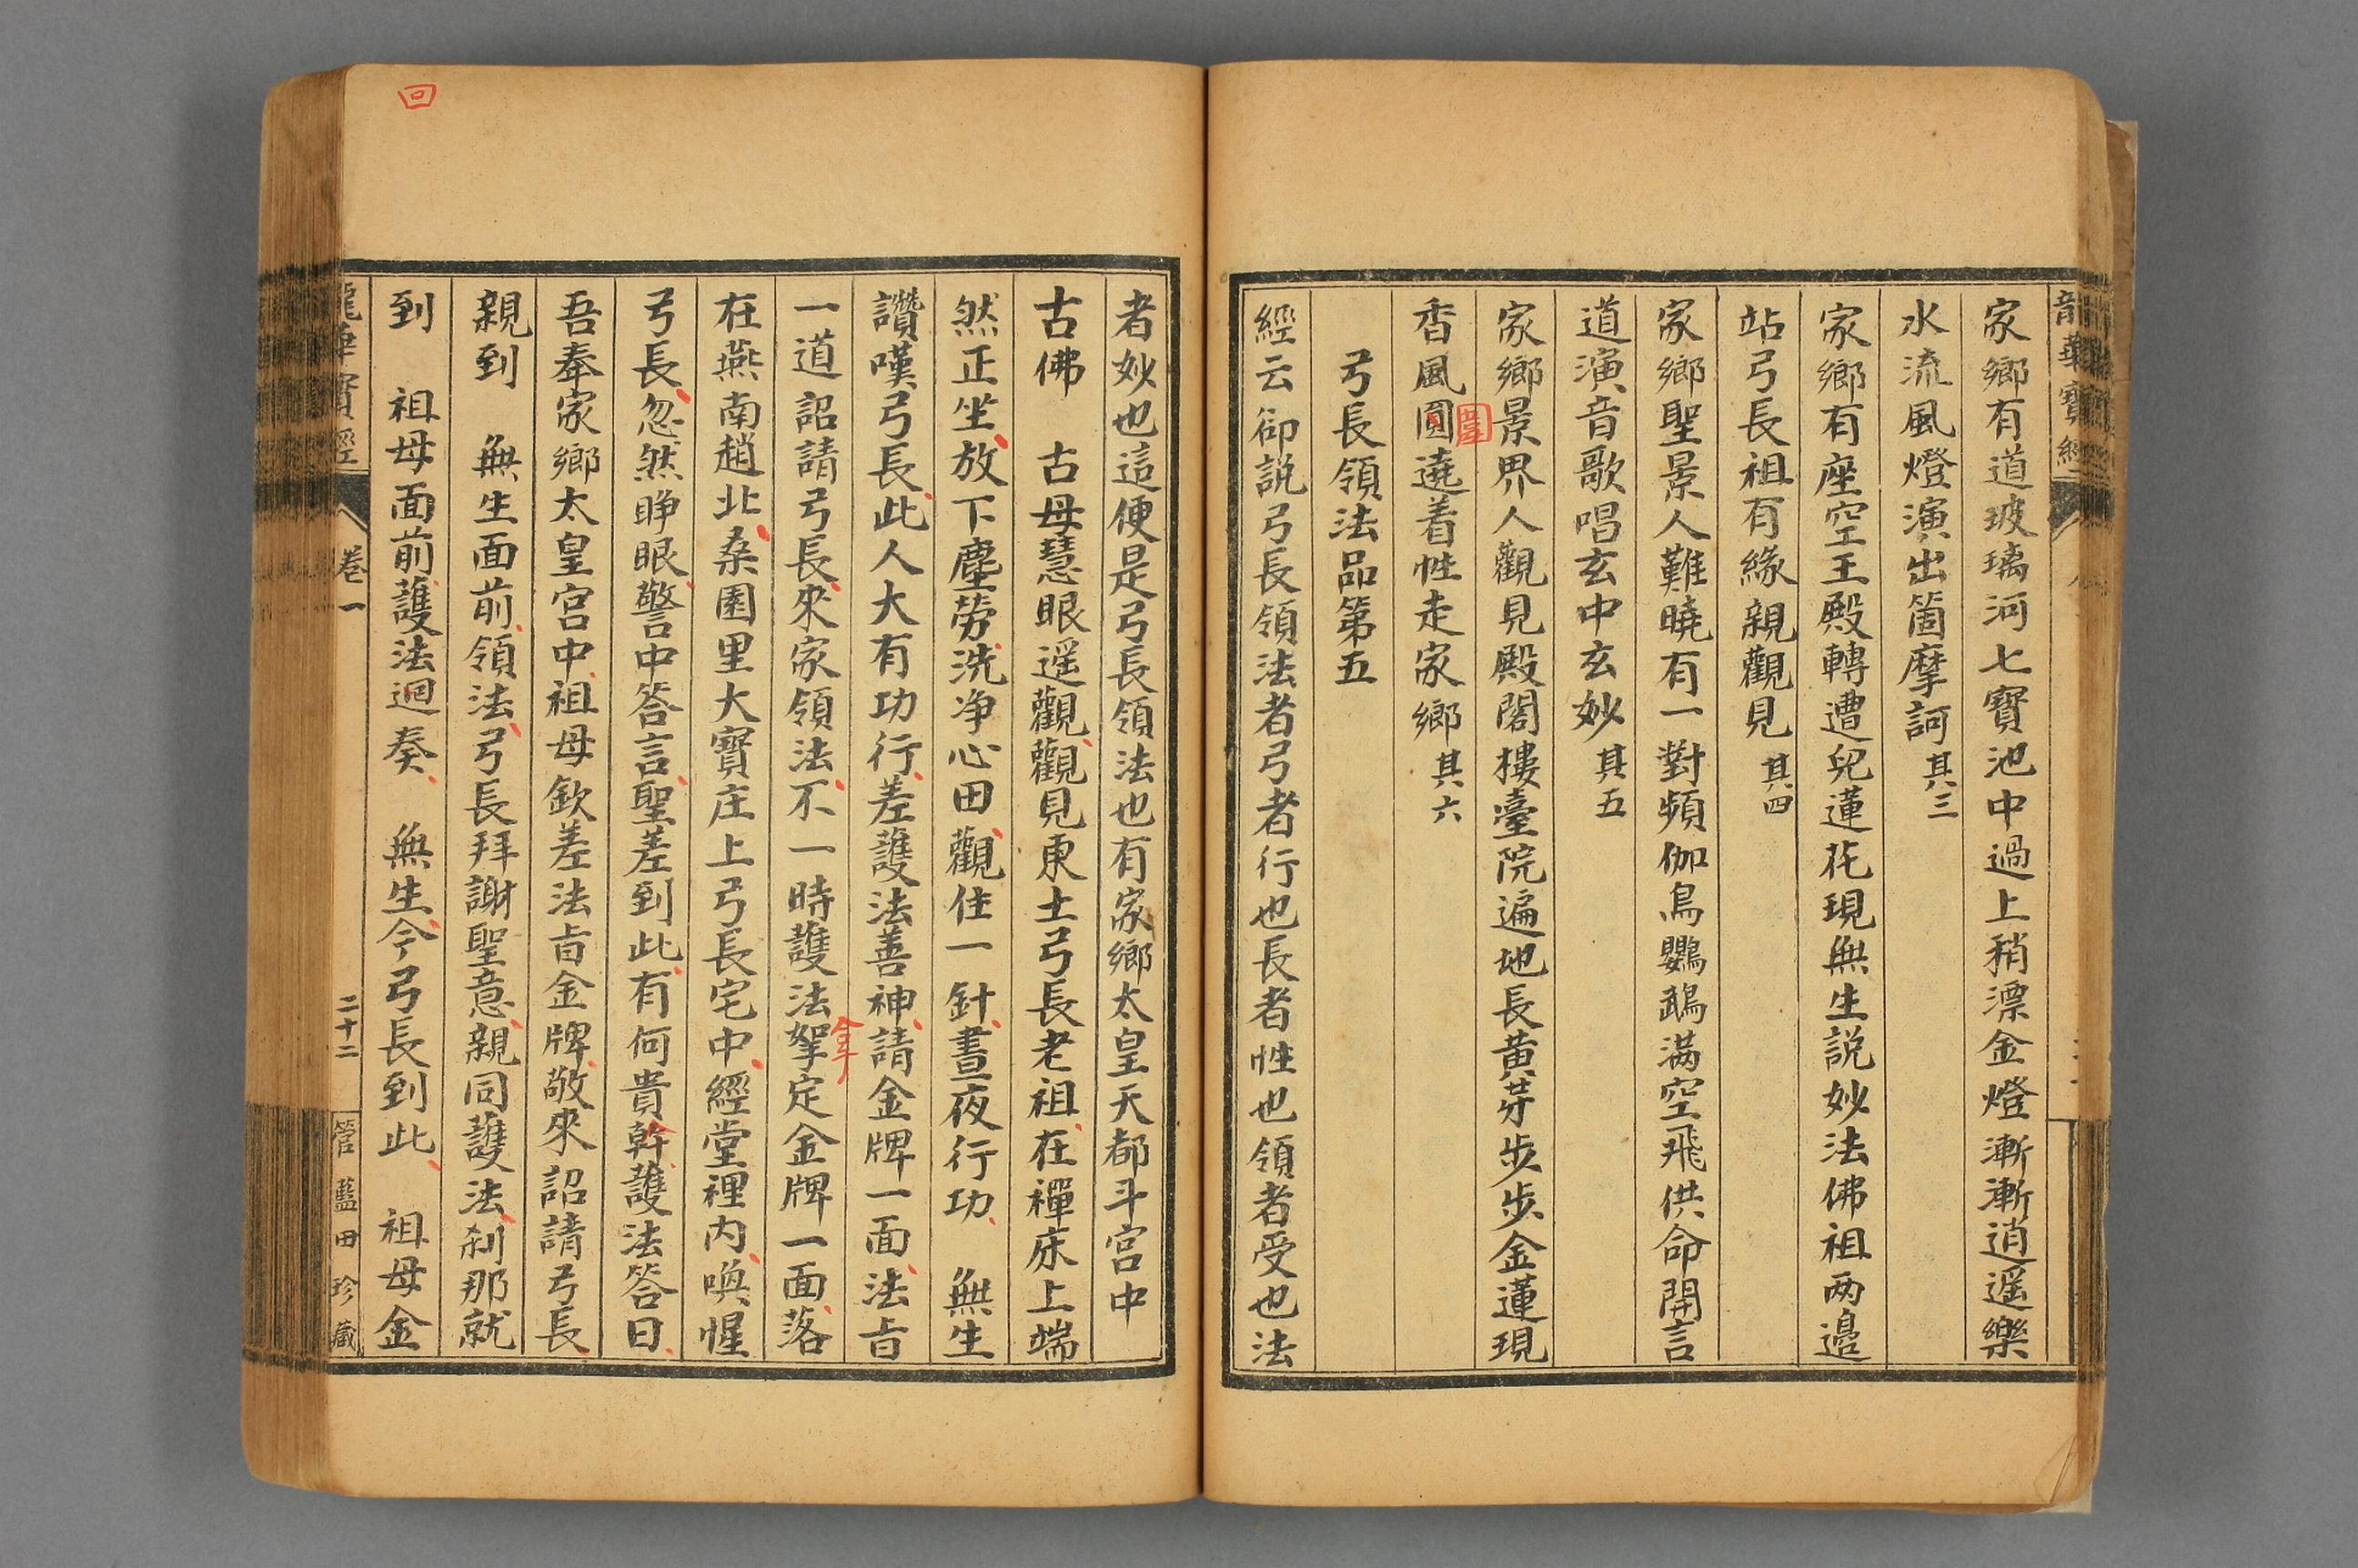 龍華寳經
家鄉有道玻璃河七寳池中過上稍漂金燈漸漸逍遥樂
水流風燈演出箇摩訶其三
家鄉有座空王殿轉遭兒蓮花現無生説妙法佛祖两邉
站弓長祖有緣親觀見其四
家鄉聖景人難曉有一對頻伽鳥鸚鵡满空飛供命開言
道演音歌唱玄中玄妙其五
家鄉景界人觀見殿閣樓臺院遍地長黃芽步步金蓮現
香風圓遶着性走家鄉其六
弓長領法品第五
經云卻説弓長領法者弓者行也長者性也領者受也法
者妙也這便是弓長領法也有家鄉太皇天都斗宫中
古佛 古母慧眼遥觀觀見東土弓長老祖在禪床上端
然正坐放下塵勞洗净心田觀住一針晝夜行功 無生
讚嘆弓長此人大有功行差護法善神請金牌一面法㫖
一道詔請弓長來家領法不一時護法拏定金牌一面落
拿
在燕南趙北桑園里大寳庄上弓長宅中經堂裡内喚惺
弓長忽然睁眼警中答言聖差到此有何貴幹護法答曰
吾奉家鄉太皇宫中祖母欽差法㫖金牌敬來詔請弓長
親到 無生面前領法弓長拜謝聖意親同護法刹那就
到 祖母面前護法迴奏 無生今弓長到此 祖母金
回
龍華寳經
卷一
二十二
管藍田珍藏